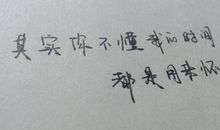 其实你不懂我的时间
都是用来怀